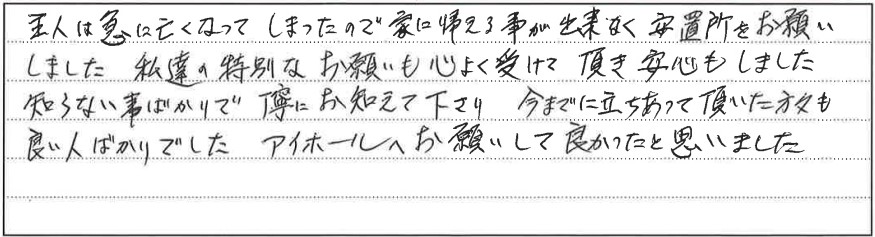 主人は急に亡くなってしまったので家に帰える事が出来なく安置所をお願い
しました 私達の特別なお願いも心よく受けて頂き安心もしました
知らない事ばかりで寧にお知えて下さり 今までに立ちあって頂いた方々も
良い人ばかりでした アイホールへお願いして良かったと思いました